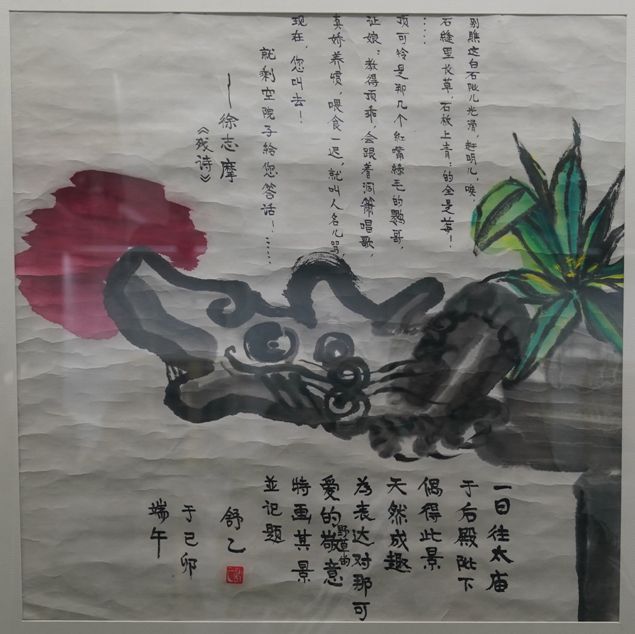 别瞧这白石阶儿光滑，赶明儿，唉，
石缝里长草，石板上青：的全是莓！
……
顶可怜是那几个红嘴绿毛的鹦哥，
让娘：教得顶乖，会跟着洞箫唱歌，
真娇养惯，喂食一迟，就叫人名儿骂，
现在，您叫去！
就剩空院子给您答话！……
—徐志摩
《残诗》
一日往太庙
于后殿阶下
偶得此景
天然成趣
為表达对那可
爱的野草的敬意
特画其景
並记题
舒乙
于己卯
端午